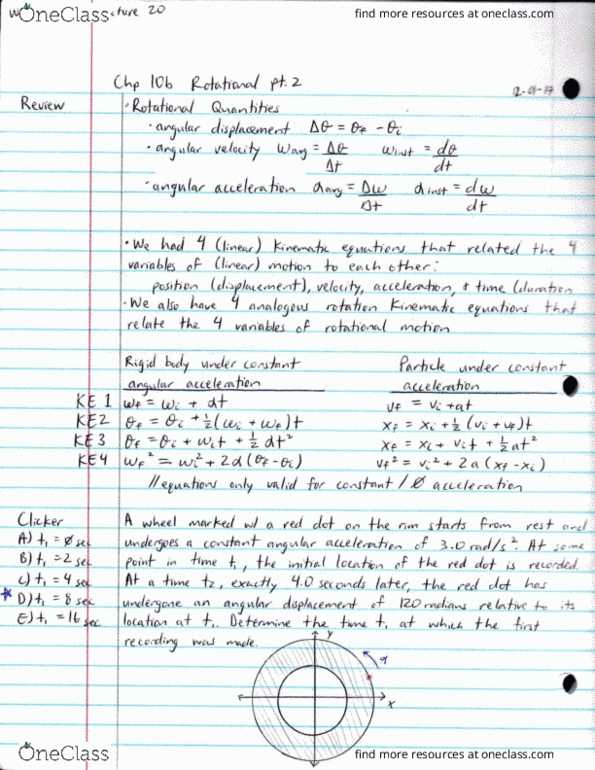 OneClass
cture 20
find more resources at oneclass.com
Chp 10b Rotational pt. 2
Review
• Rotational Quantities
• angular displacement Δθ = θf - θi
• angular velocity ωavg = Δθ/Δt ωinst = dθ/dt
• angular acceleration αavg = Δω/Δt αinst = dω/dt
• We had 4 (linear) kinematic equations that related the 4
variables of (linear) motion to each other:
position (displacement), velocity, acceleration, & time (duration
• We also have 4 analogous rotation kinematic equations that
relate the 4 variables of rotational motion
Rigid body under constant Particle under constant
angular acceleration acceleration
KE 1 ωf = ωi + αt vf = vi + at
KE2 θf = θi + ½(ωi + ωf)t xf = xi + ½(vi + vf)t
KE 3 θf = θi + ωit + ½αt² xf = xi + vit + ½at²
KE4 ωf² = ωi² + 2α(θf - θi) vf² = vi² + 2a(xf - xi)
//equations only valid for constant / Ø acceleration
Clicker
A) t₁ = Ø sec
B) t₁ = 2 sec
C) t₁ = 4 sec
* D) t₁ = 8 sec
E) t₁ = 16 sec
A wheel marked w/ a red dot on the rim starts from rest and
undergoes a constant angular acceleration of 3.0 rad/s². At some
point in time t₁, the initial location of the red dot is recorded
At a time t₂, exactly 4.0 seconds later, the red dot has
undergone an angular displacement of 120 radians relative to its
location at t₁. Determine the time t₁ at which the first
recording was made.
y
α
x
OneClass
find more resources at oneclass.com